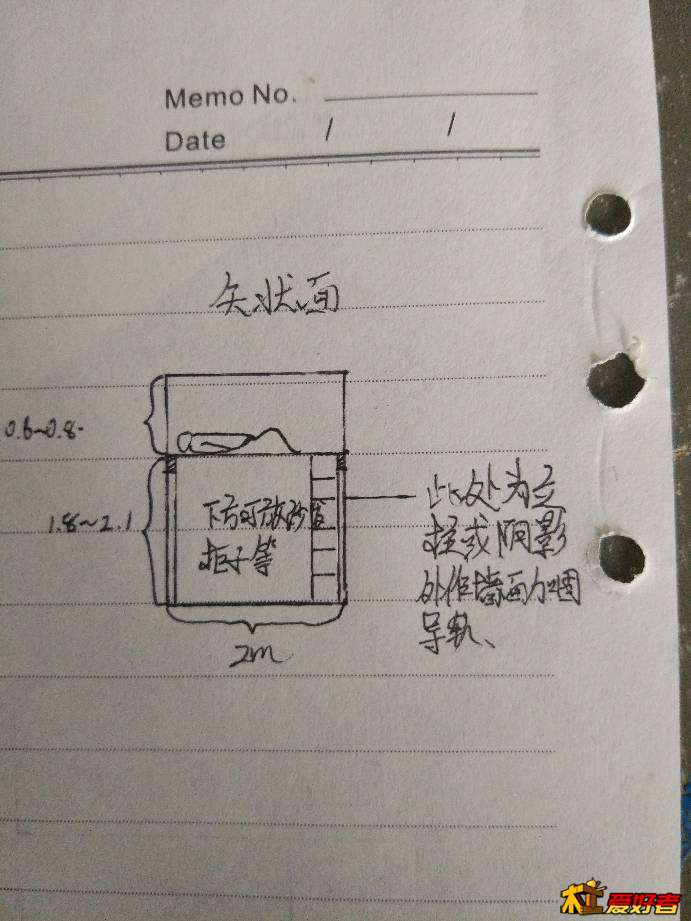 Memo No.
Date / /
矢状面
0.6~0.8
1.8~2.1
下方可放沙发
柜子等
此处为立
柱或阴影
处作墙面加固
导轨、
2m
木工爱好者